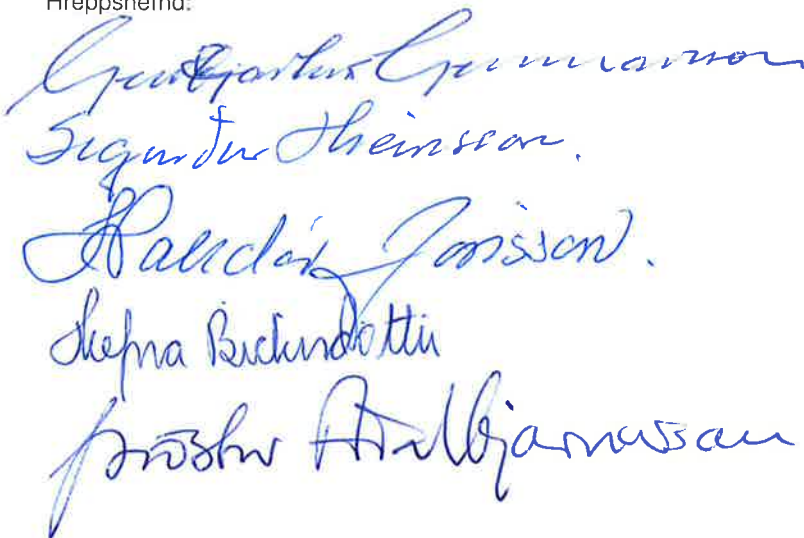 Hreppsnefnd:
Guðbjartur Gunnarsson
Sigurður Hreinsson.
Halldór Jónsson.
Hrefna Jónsson
Þröstur Aðalbjarnarson